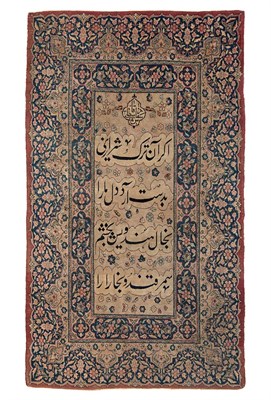 اگر آن ترک شیرازی
بدست آرد دل ما را
بخال هندویش بخشم
سمرقند و بخارا را